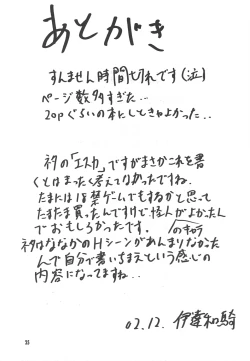 あとがき
すんません時間切れです(泣)
ページ数多すぎた…
20pぐらいの本にしときゃよかった..
ネタの「エスカ」ですがまさかこれを書
くとはまったく考えてなかったですね.
たまには18禁ゲムでもするかと思って
たまたま買ったんですけど怪人がよかったん
でおもしろかったです.
のキャラ
ネタはななかのHシーンがあんまりなかった
んで自分で書いちまえという感じの
内容になってますね..
02.12. 伊達和騎
33